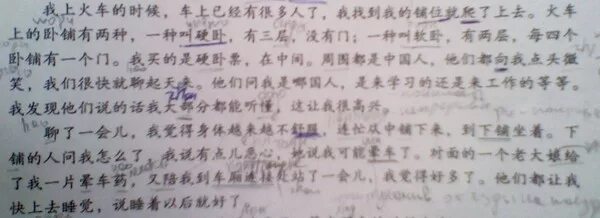 我上火车的时候，车上已经有很多人了，我找到我的铺位就爬了上去。火车
上的卧铺有两种，一种叫硬卧，有三层，没有门；一种叫软卧，有两层，每四个
卧铺有一个门。我买的是硬卧票，在中间。周围都是中国人，他们都向我点头微
笑，我们很快就聊起天来。他们问我是哪国人，是来学习的还是来工作的等等。
我发现他们说的话我大部分都能听懂，这让我很高兴。
聊了一会儿，我觉得身体越来越不舒服，连忙从中铺下来，到下铺坐着。下
铺的人问我怎么了，我说有点儿恶心，她说我可能晕车了。对面的一个老大娘给
了我一片晕车药，又陪我到车厢连接处站了一会儿，我觉得好多了。他们都让我
快上去睡觉，说睡着以后就好了